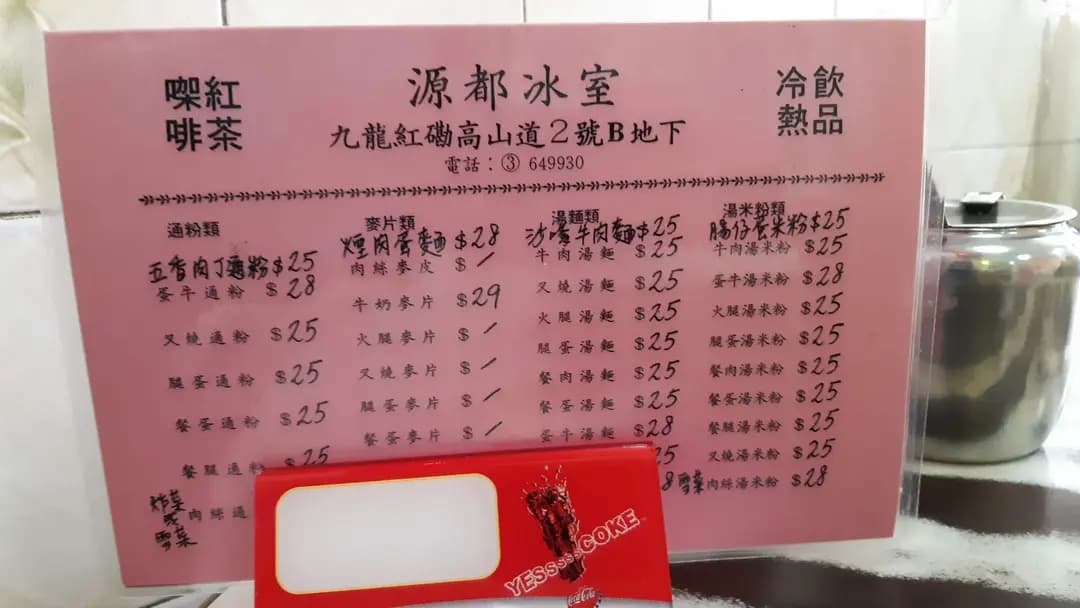 㗎啡
紅茶
源都冰室
九龍紅磡高山道2號B地下
電話：③ 649930
冷熱
飲品
通粉類
五香肉丁通粉$25
蛋牛通粉 $28
叉燒通粉 $25
腿蛋通粉 $25
餐蛋通粉 $25
餐腿通粉 $25
炸菜
或
雪菜
肉絲通
麥片類
煙肉蛋麵 $28
肉絲麥皮 $ /
牛奶麥片 $29
火腿麥片 $ /
叉燒麥片 $ /
腿蛋麥片 $ /
餐蛋麥片 $ /
湯麵類
沙嗲牛肉麵$25
牛肉湯麵 $25
叉燒湯麵 $25
火腿湯麵 $25
腿蛋湯麵 $25
餐肉湯麵 $25
餐蛋湯麵 $25
蛋牛湯麵 $28
25
8
湯米粉類
腸仔蛋米粉$25
牛肉湯米粉 $25
蛋牛湯米粉 $28
火腿湯米粉 $25
腿蛋湯米粉 $25
餐肉湯米粉 $25
餐蛋湯米粉 $25
餐腿湯米粉 $25
叉燒湯米粉 $25
雪菜肉絲湯米粉 $28
YESSSSSCOKE
Coca-Cola